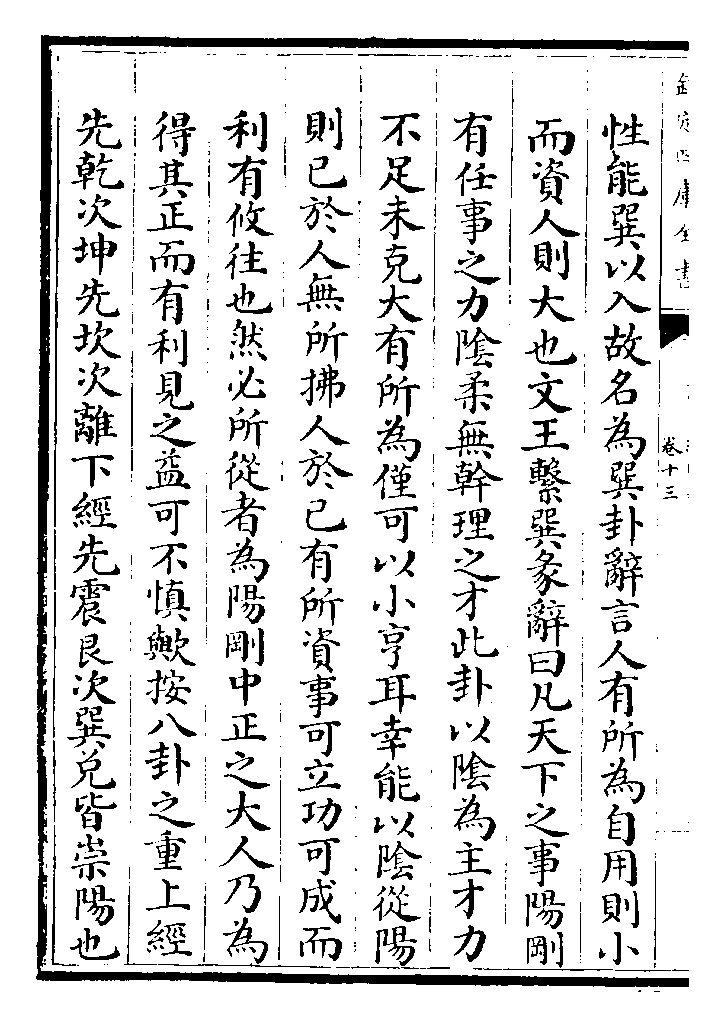 欽定四庫全書
卷十三
性能巽以入故名為巽卦辭言人有所為自用則小
而資人則大也文王繫巽彖辭曰凡天下之事陽剛
有任事之力陰柔無幹理之才此卦以陰為主才力
不足未克大有所為僅可以小亨耳幸能以陰從陽
則已於人無所拂人於已有所資事可立功可成而
利有攸往也然必所從者為陽剛中正之大人乃為
得其正而有利見之益可不慎歟按八卦之重上經
先乾次坤先坎次離下經先震艮次巽兌皆崇陽也